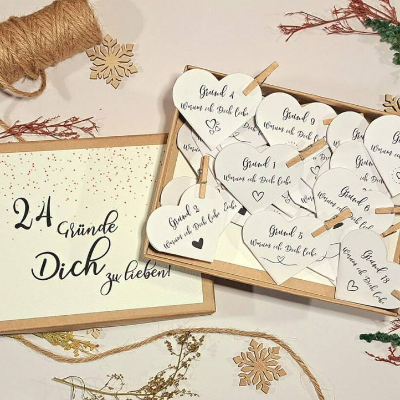 24 Gründe
Dich
zu lieben!
Grund 4
Warum ich Dich liebe
Grund 9
Warum ich Dich liebe
Grund 1
Warum ich Dich liebe
Grund 2
Warum ich Dich liebe
Grund 5
Warum ich Dich liebe
Grund 6
Warum ich Dich liebe
Grund 13
Warum ich Dich liebe
Grund
Warum ich Dich liebe